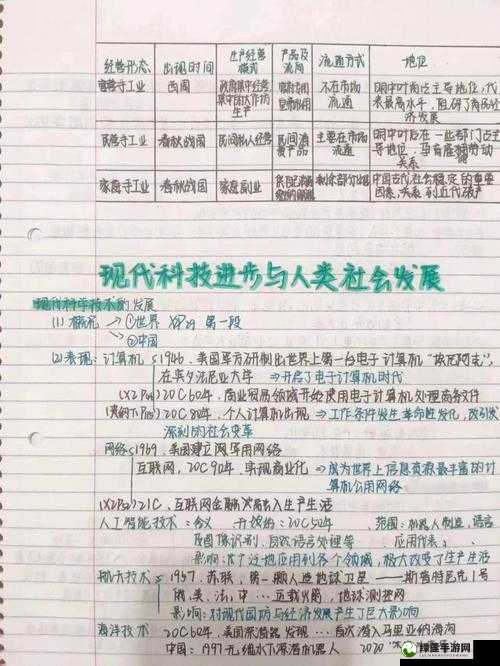 经营形态 出现时间 生产经营模式 产品及流向 流通方式 地位
官营手工业 西周 政府集中经营 不在市场流通 明中叶前占主导地位,代表最高水平,阻碍了商品经济发展
民营手工业 春秋战国 民间私人经营 民间消费产品 主要在市场流通 明中叶后在一些部门占主导地位,孕育雇佣劳动关系
家庭手工业 春秋战国 家庭副业 剩余部分出售 中国古代社会稳定的重要因素
现代科技进步与人类社会发展
现代科学技术的发展
(1) 概况 → ①世界 XP29 第一段
②中国
(2) 表现: 计算机 1946, 美国军方研制出世界上第一台电子计算机"埃尼阿克",
在宾夕法尼亚大学 ⇒ 开启了电子计算机时代
20C60年代, 商业贸易领域开始使用电子计算机处理商务文件
20C80年代, 个人计算机出现 ⇒ 工作条件发生革命性变化, 改引发
深刻的社会变革
网络 1969, 美国建立军用网络
互联网, 20C90年代, 实现商业化 ⇒ 成为世界上信息资源最丰富的计
算机公用网络
21C, 互联网金融 入生产生活
人工智能技术: 含义 开始的: 20C50年代 范围: 机器人制造, 语言
及图像识别, 自然语言处理等 应用代表:
影响: 广泛地应用到各个领域, 极大改变了生产生活
航天技术 1957, 苏联, 第一颗人造地球卫星 —— 斯普特尼克1号
俄、美、法、中… 运载火箭, 地球测控网
影响: 对现代国防与经济发展产生了巨大影响
海洋技术 20C60年代, 美国深潜器发现 … 首次潜入马里亚纳海沟
中国: 1997 无缆水下深潜机器人 2020
绿莲手游网